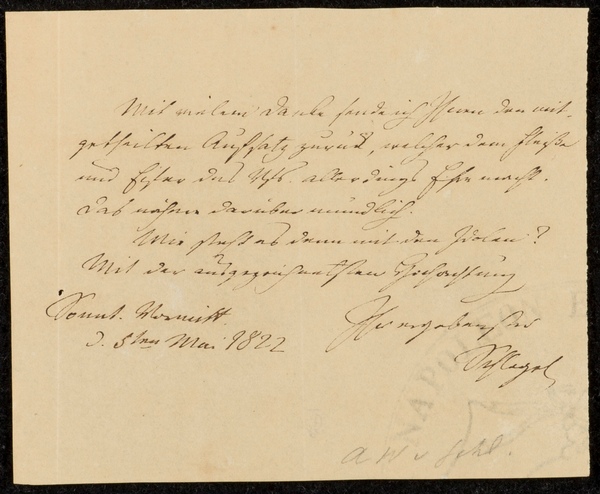 Mit vielem Danke sende ich Ihnen den mit-
getheilten Aufsatz zurück, welcher dem Fleiße
und Eifer des Vfs. allerdings Ehre macht.
Das nähere darüber mündlich.
Wie steht es denn mit den Idolen?
Mit der ausgezeichnetsten Hochachtung
Sonnt. Vormitt.
d. 5ten Mai 1822
Ihr ergebenster
Schlegel
NAPOLEON
A W v Schl.